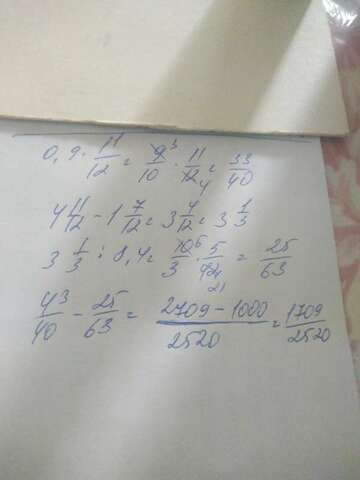 0,9 · 11/12 = 9³/10 · 11/12₄ = 33/40
4 11/12 - 1 7/12 = 3 4/12 = 3 1/3
3 1/3 : 8,4 = 10⁵/3 · 5/42₂₁ = 25/63
43/40 - 25/63 = 2709 - 1000/2520 = 1709/2520